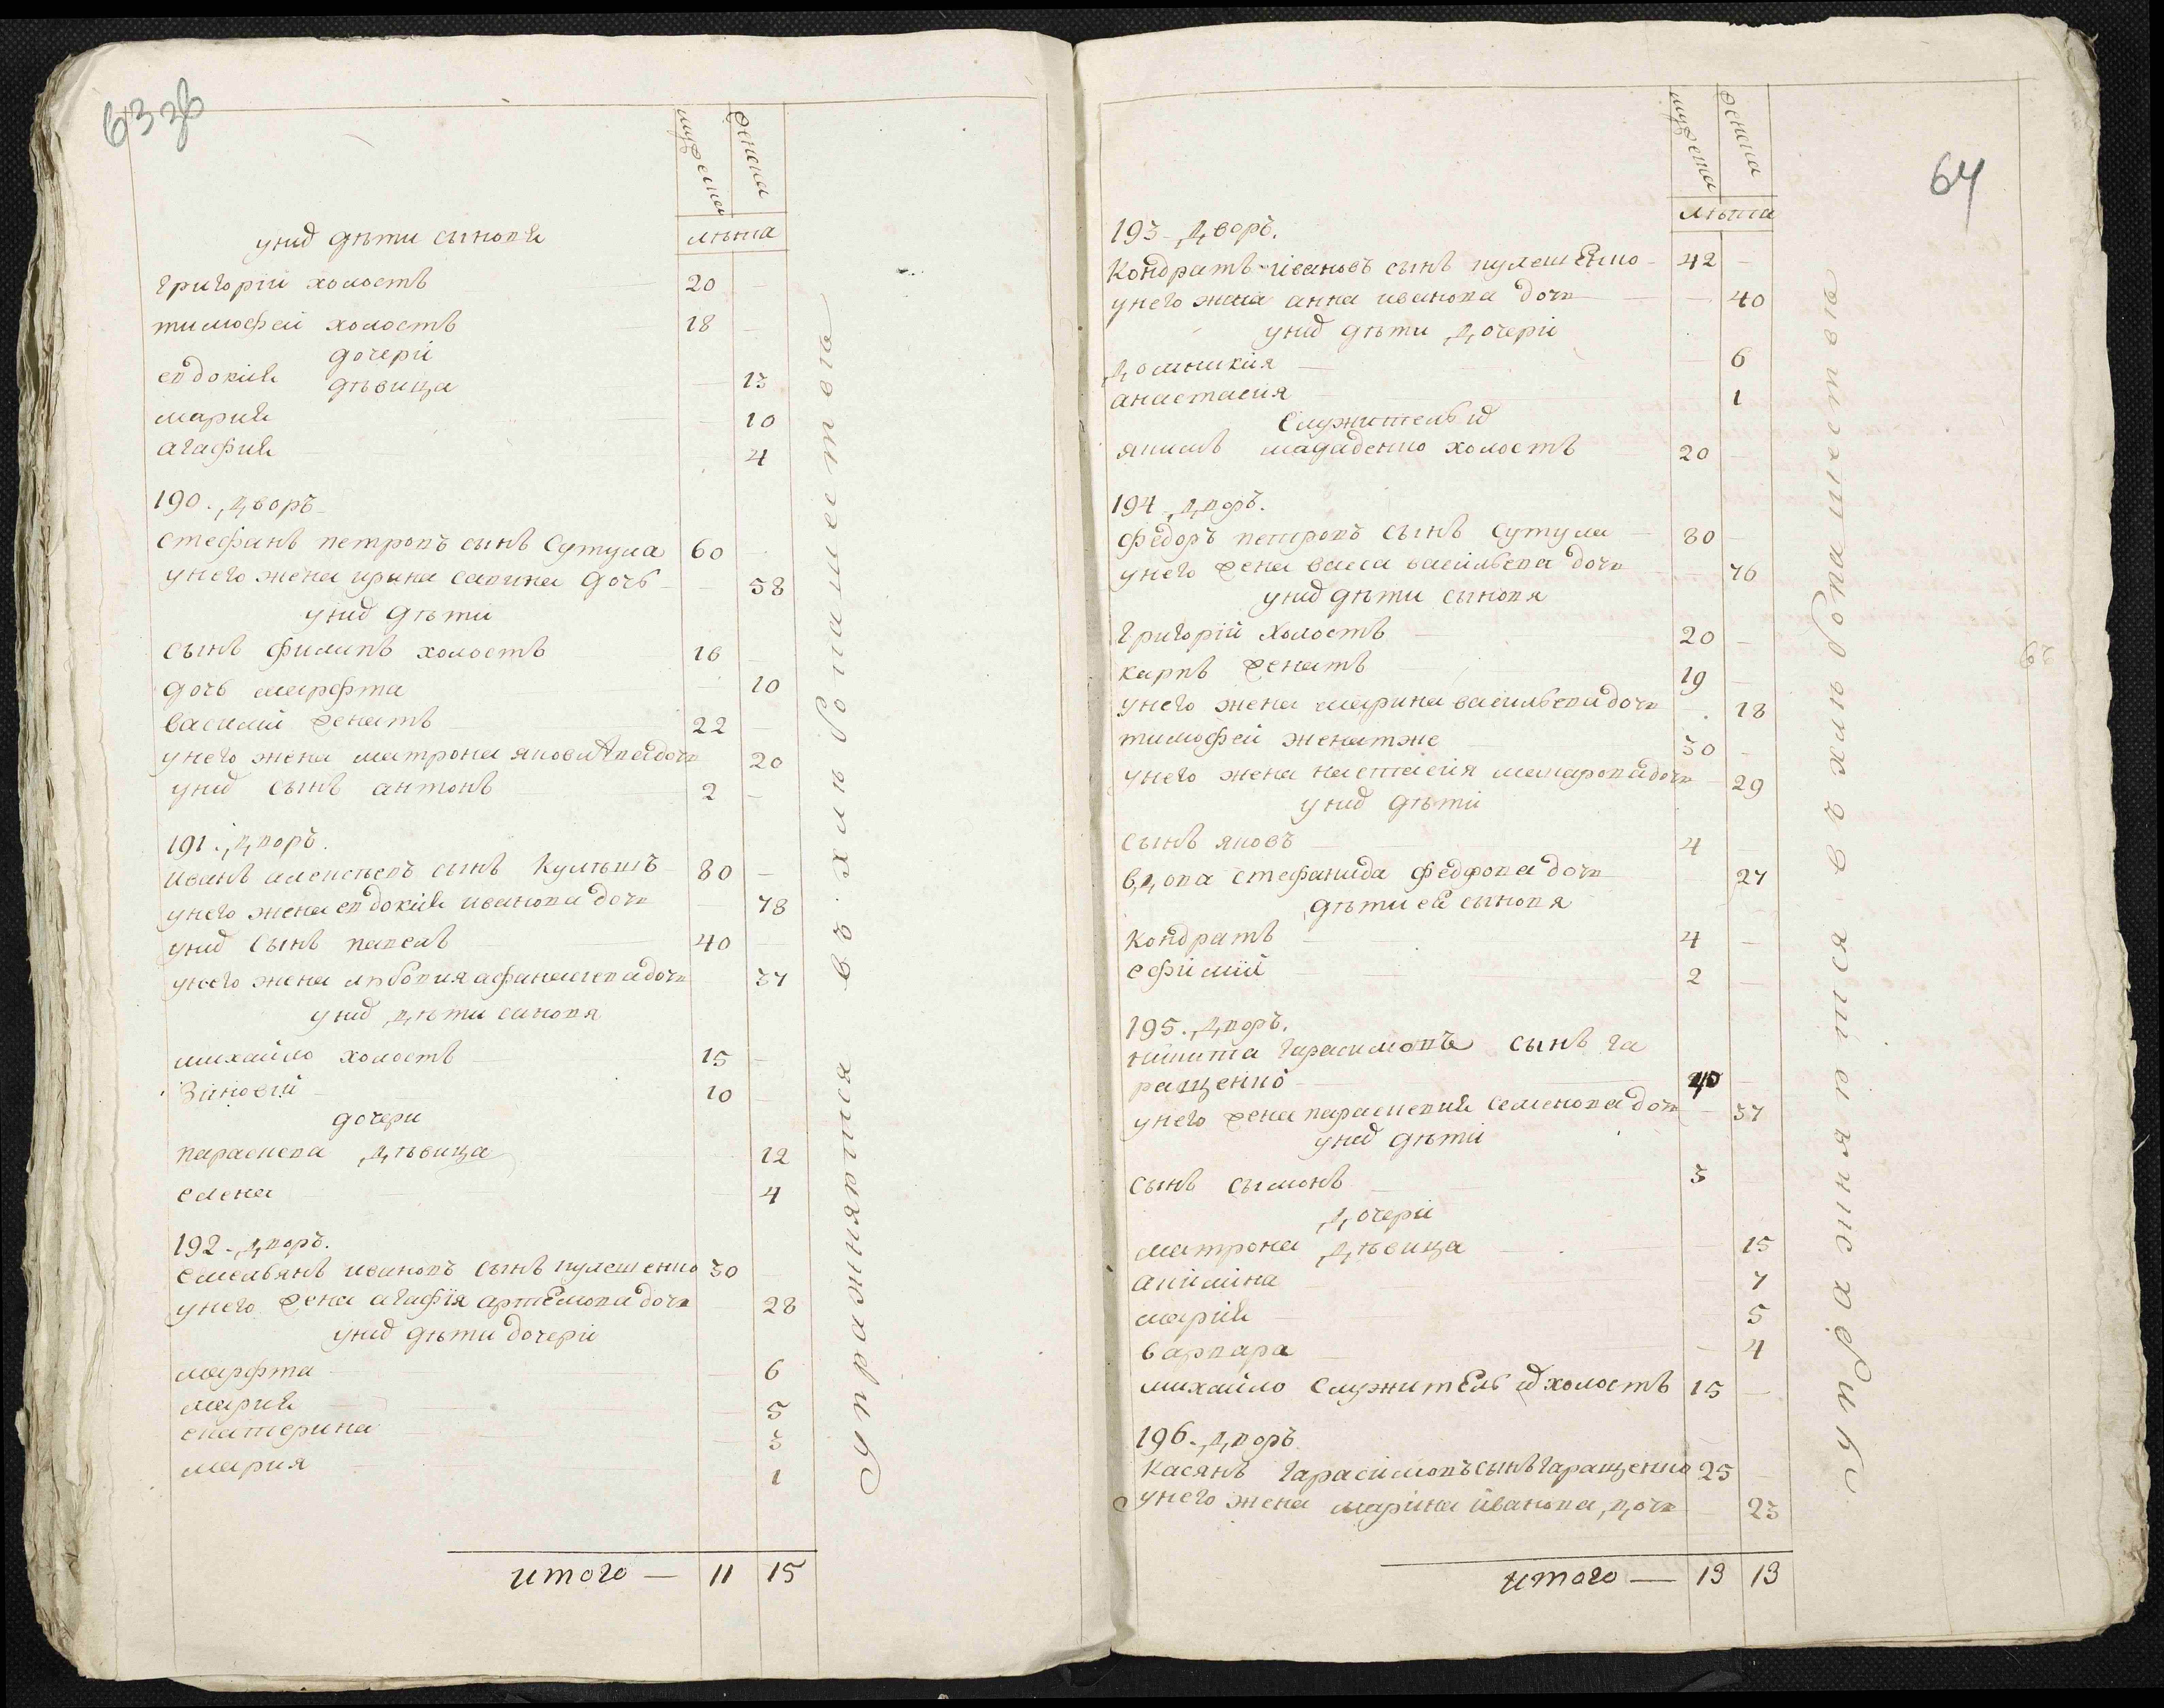 63 зв
мужеска
женска
лѣта
у нихъ дѣти синовя
григорій холостъ 20
тимофей холостъ 18
дочерй
евдокия дѣвица 13
мария 10
агафия 4
190. дворъ
стефанъ петровъ сынъ Сутула 60
у него жена ирина савина дочь 58
у нихъ дѣти
сынъ филипъ холостъ 16
дочь марфта 10
василий женатъ 22
у него жена матрона яковлева дочь 20
у нихъ сынъ антонъ 2
191. дворъ.
иванъ алексѣевъ сынъ Кулѣшъ 80
у него жена евдокия иванова дочь 78
у нихъ сынъ павелъ 40
у него жена любовия афанасиева дочь 37
у нихъ дѣти синовя
михайло холостъ 15
Зиновій 10
дочери
параскева дѣвица 12
елена 4
192. дворъ.
емельянъ ивановъ сынъ кулешенко 30
у него жена агафія артемова дочь 28
у нихъ дѣти дочерій
марфта 6
мария 5
екатерина 3
мария 1
итого — 11 15
упражняются въ хлѣбопашествѣ
64
мужеска
женска
лѣта
193. дворъ.
Кондратъ ивановъ сынъ кулешенко 42
у него жена анна иванова дочь 40
у нихъ дѣти дочерій
домникия 6
анастасия 1
Служитель их
якимъ холостъ 20
194 дворъ.
федоръ петровъ сынъ Сутула 80
у него жена васса васильева дочь 76
у нихъ дѣти синовя
григорій холостъ 20
карпъ женатъ 19
у него жена марина васильева дочь 18
тимофей женатже 30
у него жена настасия макарова дочь 29
у нихъ дѣти
сынъ яковъ 4
вдова стефанида федрова дочь 27
дѣти ея синовя
Кондратъ 4
ефимий 2
195. дворъ.
никита гарасимовъ сынъ га
ращенко 40
у него жена параскевия семенова дочь 37
у нихъ дѣти
сынъ сымонъ 3
дочерій
матрона дѣвица 15
акилина 7
мария 5
варвара 4
михайло служитель их холостъ 15
196. дворъ
Касянъ гарасимовъ сынъ гаращенко 25
у него жена марина иванова дочь 23
итого — 13 13
упражняются въ хлѣбопашествѣ